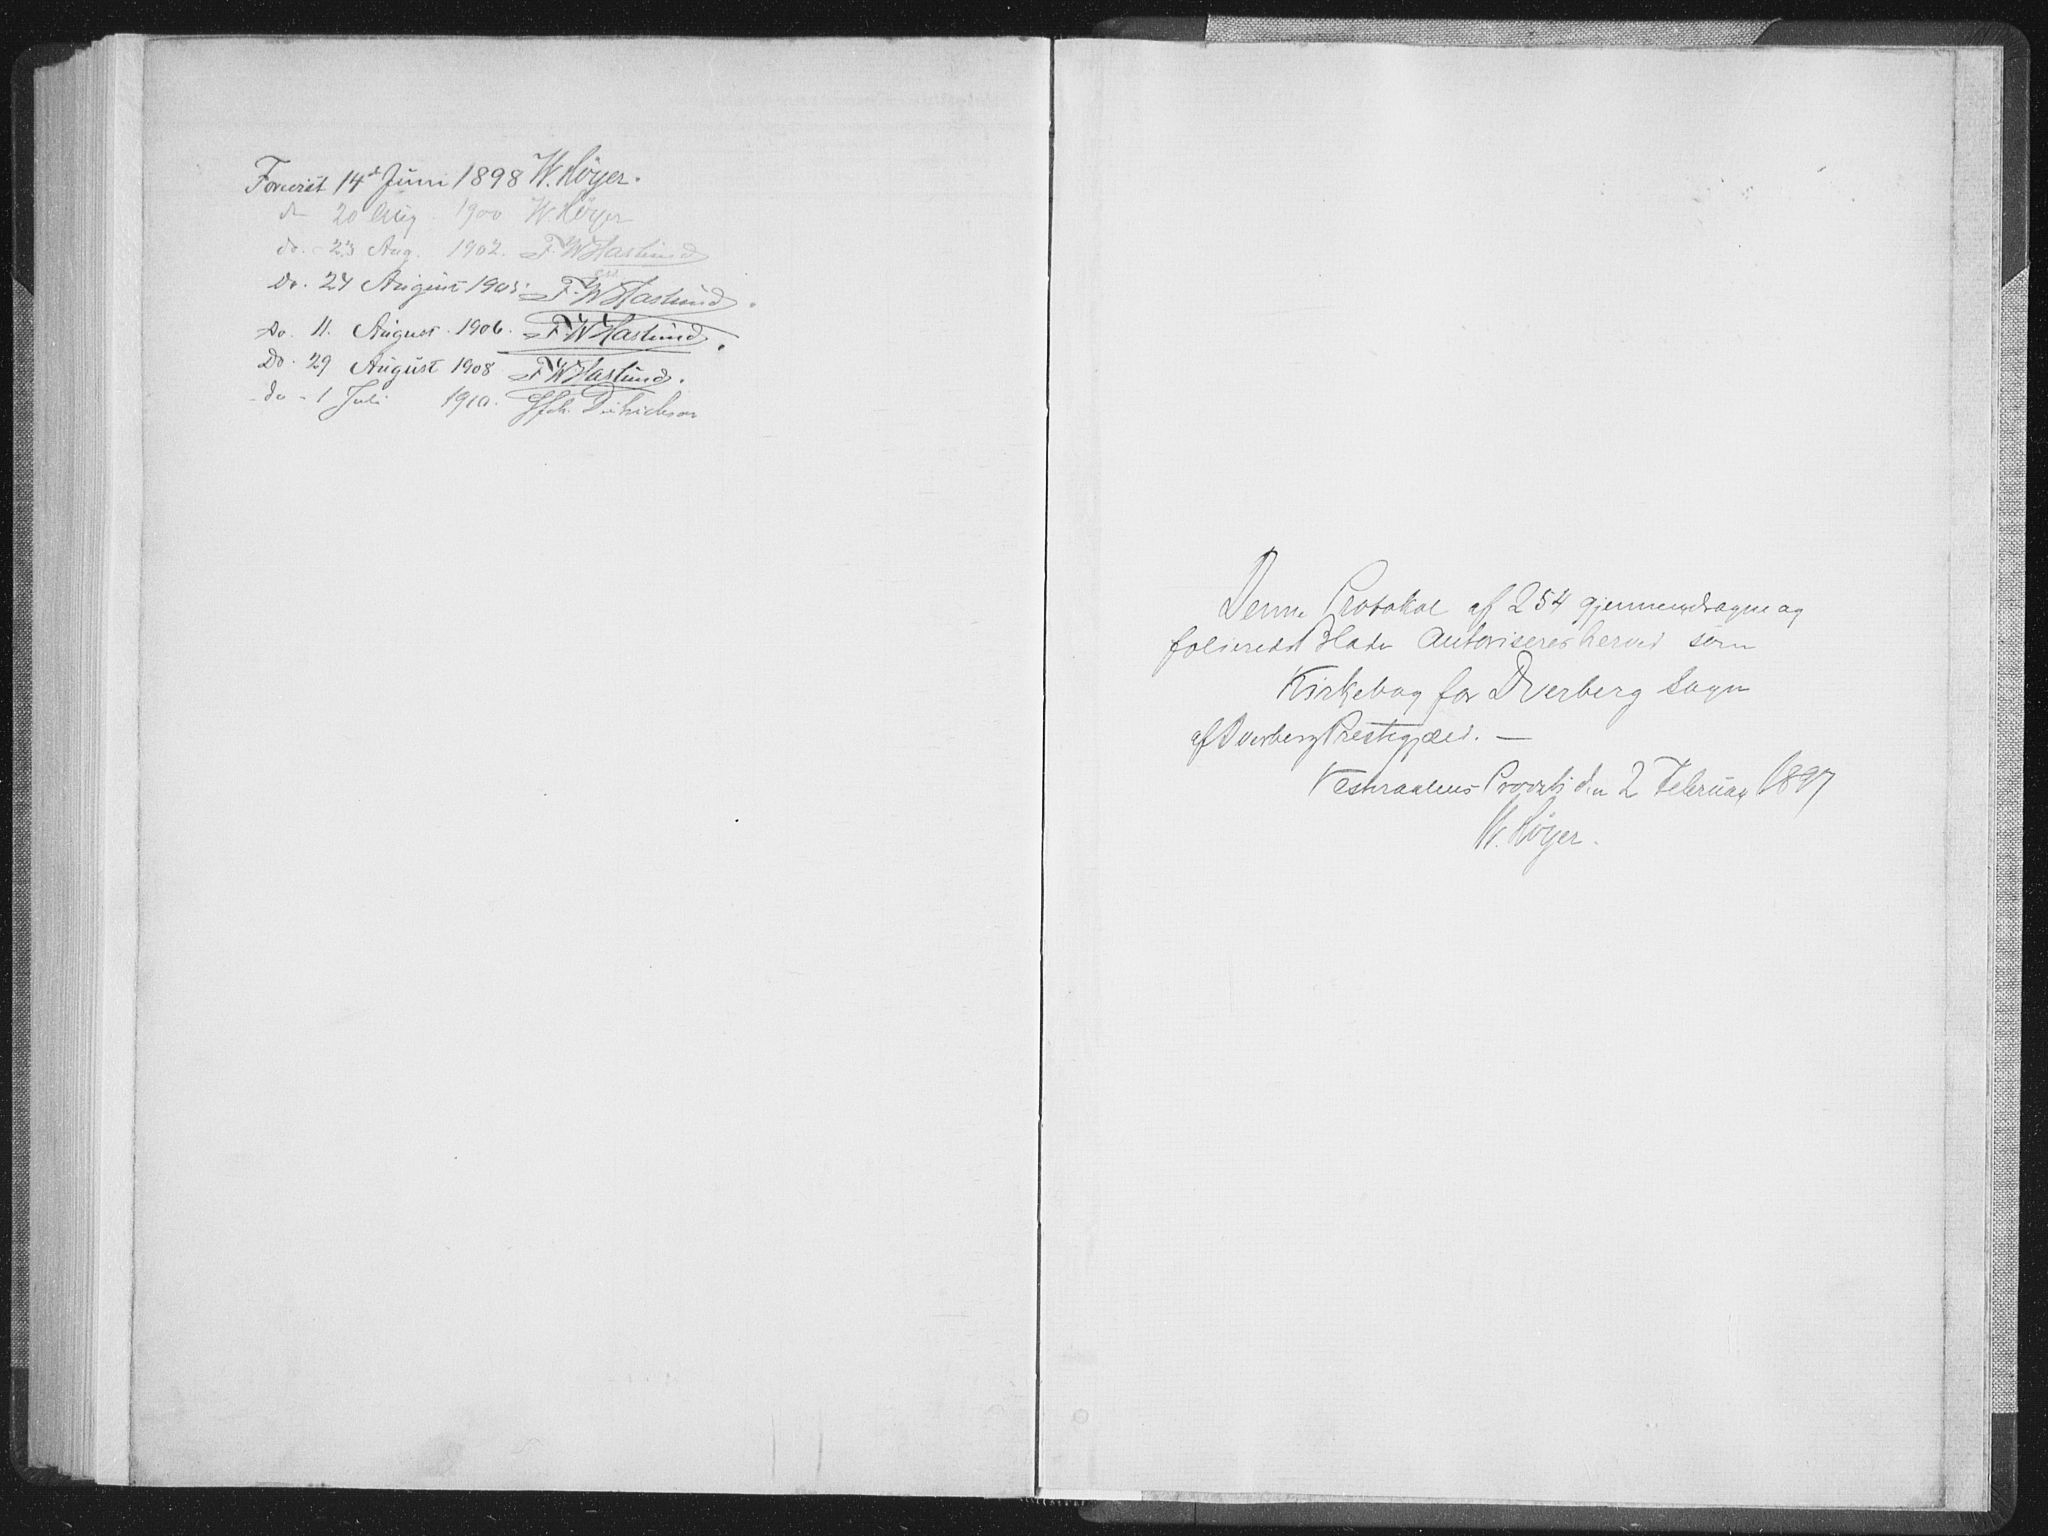 Forevist 14d Juni 1898 W. Høyer.
do 20 Aug. 1900 W. Høyer
do. 23 Aug. 1902. F. W. Haslund
Do. 24 August 1905. F. W. Haslund.
Do. 11. August 1906. F. W. Haslund.
Do. 29 August 1908 F. W. Haslund.
do - 1 Juli 1910. Didrichson
Denne Protokol af 254 gjennemdragne og
folierede Blade autoriseres herved som
Kirkebog for Dverberg Sogn
af Dverberg Prestegjæld. —
Vesteraalens Provsti den 2 Februar 1897
W. Høyer.